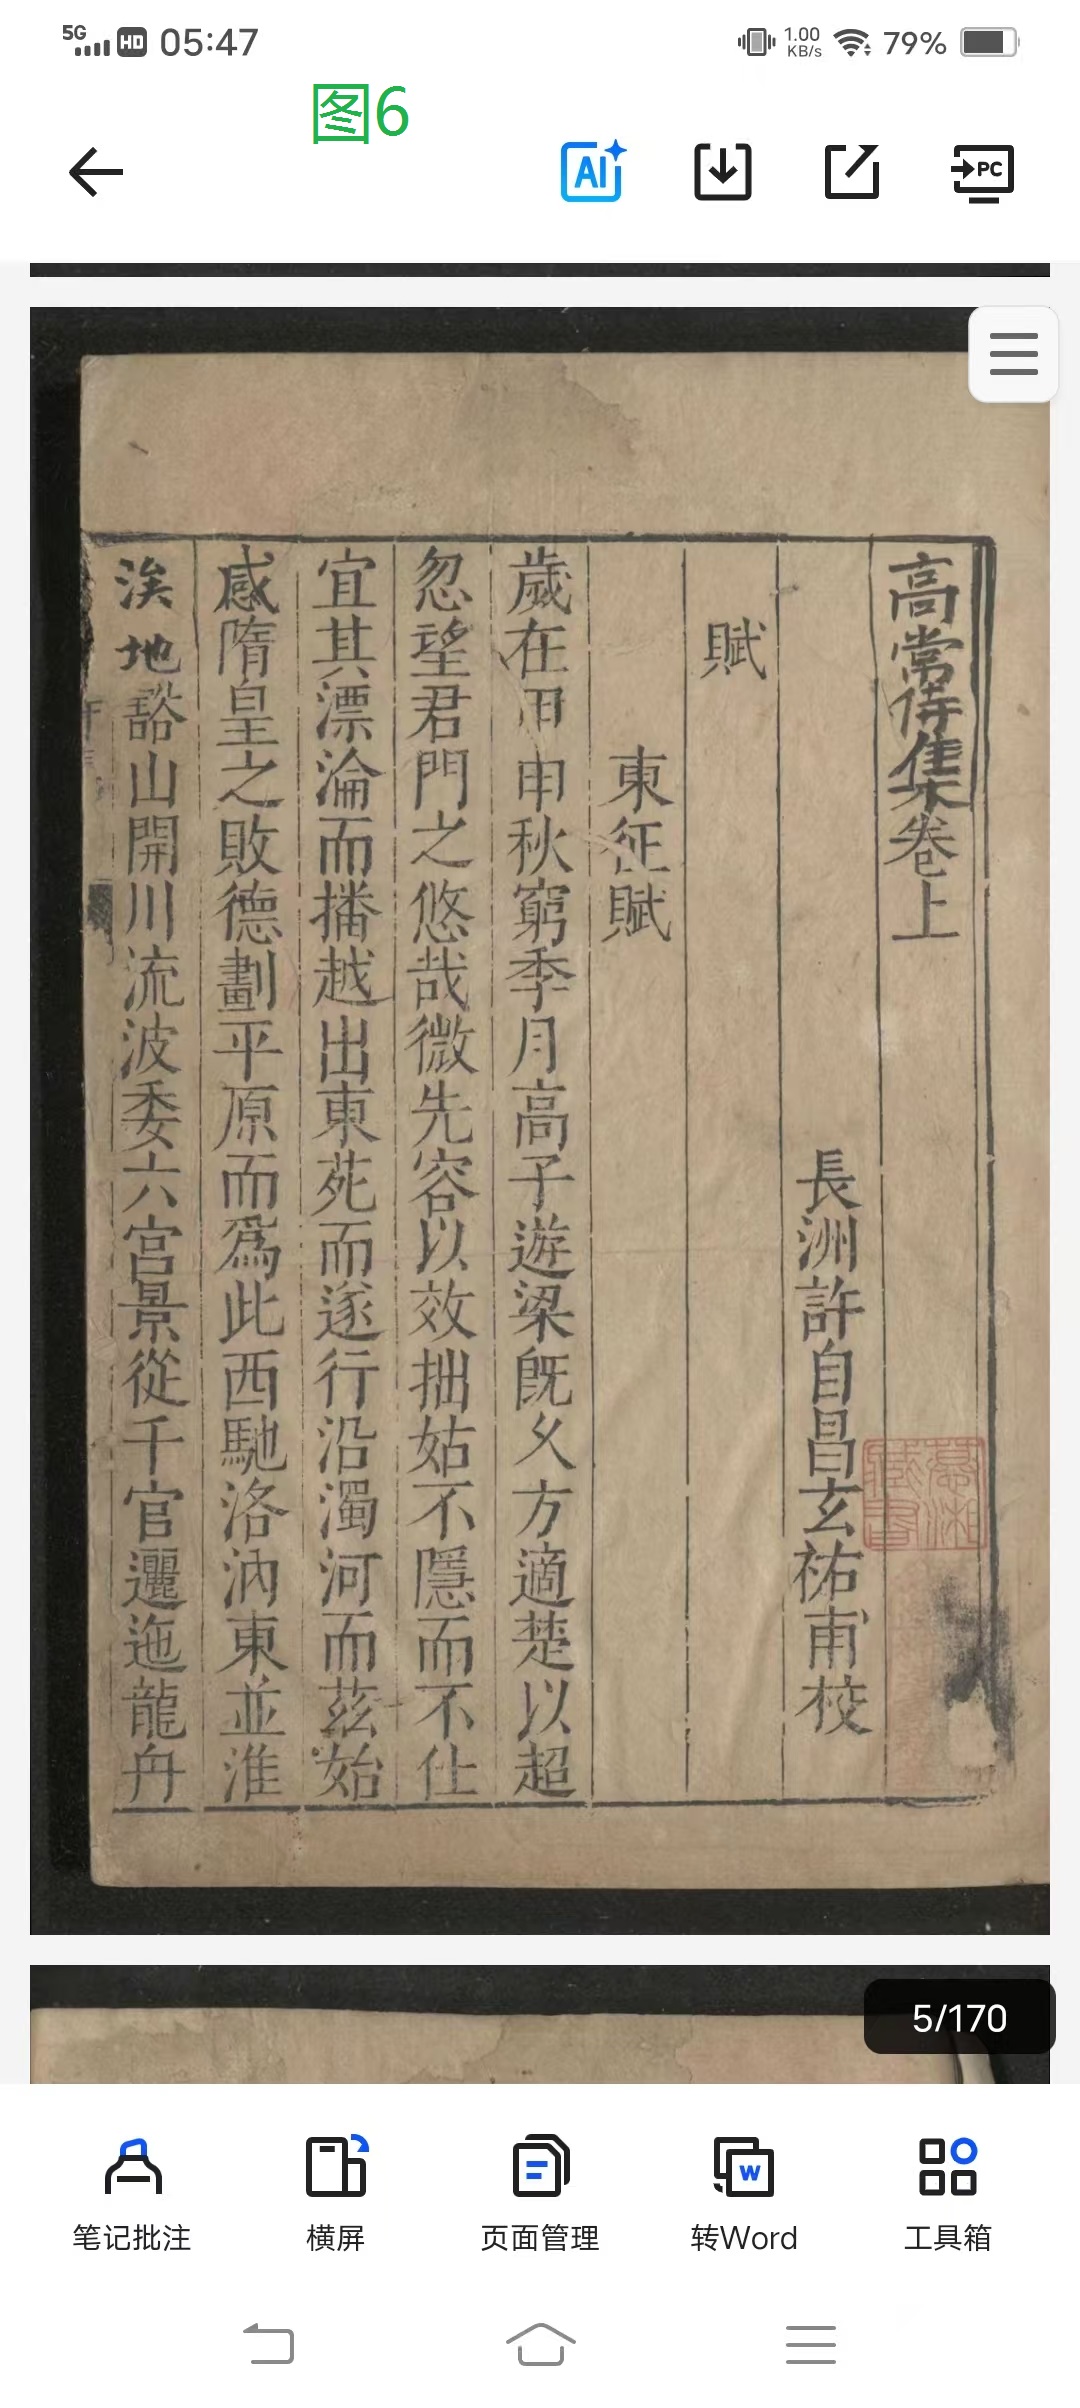 5G HD 05:47 1.00 KB/s 79%
图6
AI PC
高常侍集卷上
長洲許自昌玄祐甫校
賦
東征賦
歲在甲申秋窮季月高子遊梁旣久方適楚以超
忽望君門之悠哉微先容以效拙姑不隱而不仕
宜其漂淪而播越出東苑而遂行沿濁河而茲始
感隋皇之敗德劃平原而爲此西馳洛汭東並淮
涘地豁山開川流波委六宫景從千官邐迤龍舟
5/170
笔记批注
横屏
页面管理
转Word
工具箱